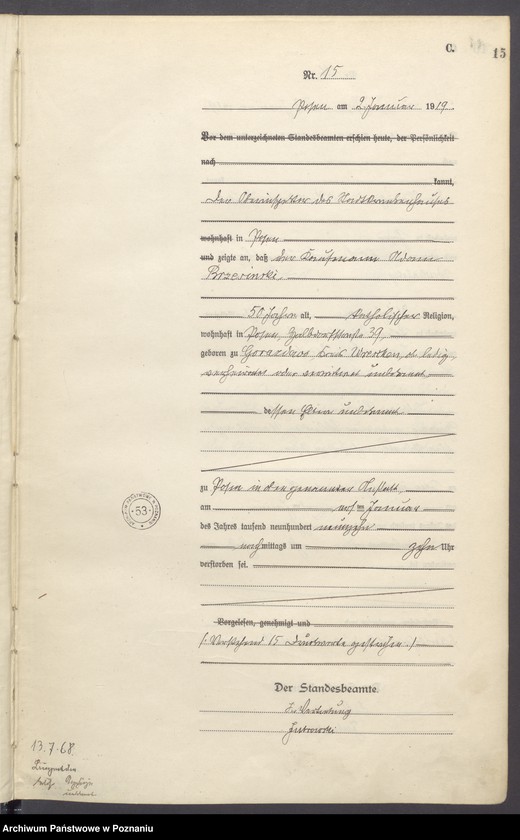 C.
15
Nr. 15
Posen am 2. Januar 1919.
Vor dem unterzeichneten Standesbeamten erschien heute, der Persönlichkeit
nach
kannt,
Der Oberinspektor des Stadtkrankenhauses
wohnhaft in Posen
und zeigte an, daß der Kaufmann Adam
Brzesinski
50 Jahre alt, katholischer Religion,
wohnhaft in Posen, 39,
geboren zu Kreis Wreschen, ob ledig,
verheiratet oder verwitwet unbekannt
dessen Eltern unbekannt
zu Posen in der genannten Anstalt
am ersten Januar
des Jahres tausend neunhundert neunzehn
nachmittags um zehn Uhr
verstorben sei.
Vorgelesen, genehmigt und
(: Vorstehend 15 Druckworte gestrichen :)
Der Standesbeamte.
In Vertretung
53
13.7.68.
Archiwum Państwowe w Poznaniu